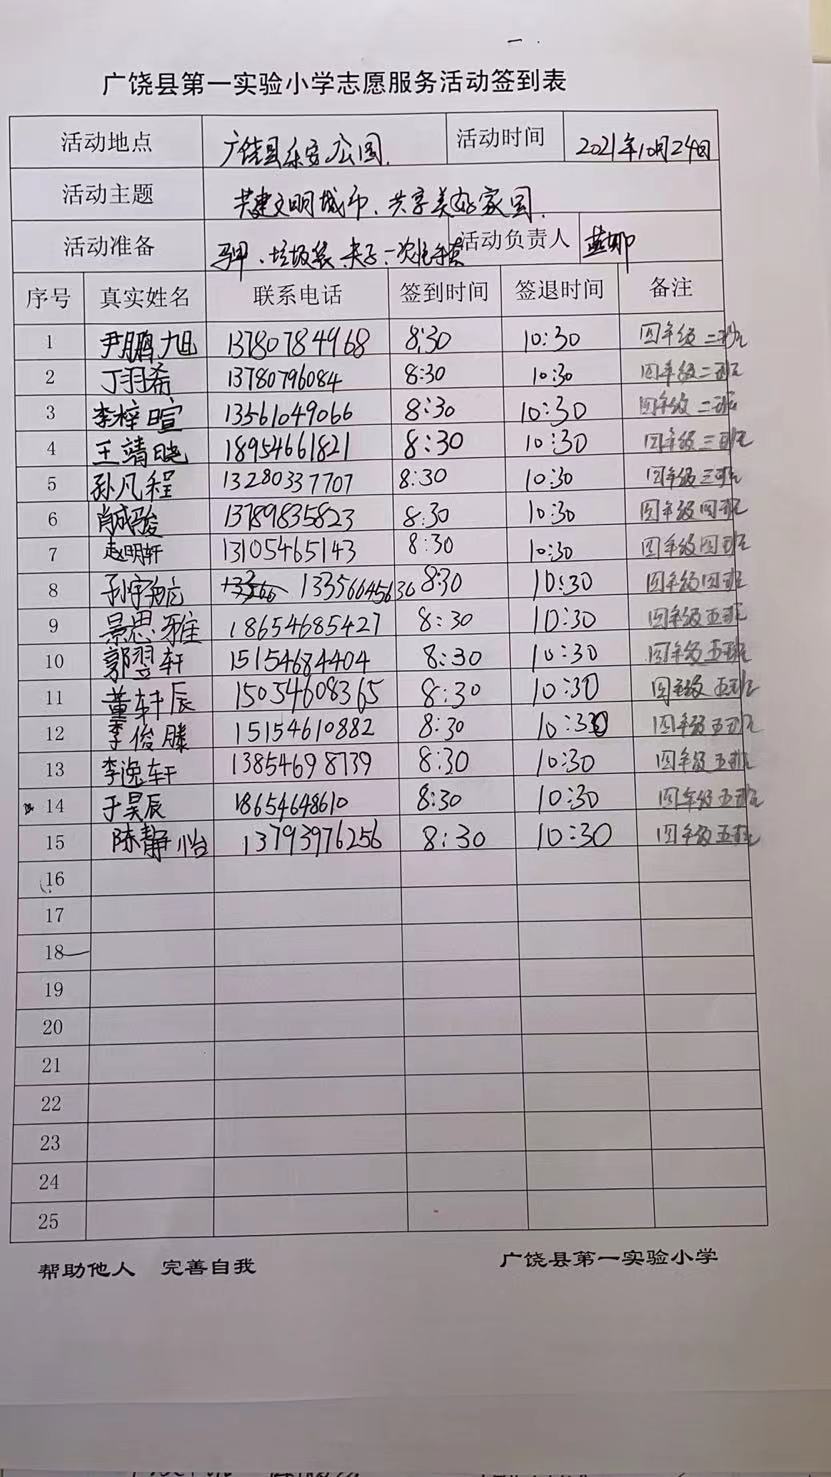 广饶县第一实验小学志愿服务活动签到表
活动地点 广饶县乐安公园. 活动时间 2021年10月24日
活动主题 共建文明城市、共享美好家园.
活动准备 马甲、垃圾袋、夹子、一次性手套 活动负责人
序号 真实姓名 联系电话 签到时间 签退时间 备注
1 尹鹏旭 13780784968 8:30 10:30 四年级二班
2 丁羽希 13780796084 8:30 10:30 四年级二班
3 李梓暄 13561049066 8:30 10:30 四年级二班
4 王靖晓 18954661821 8:30 10:30 四年级三班
5 孙凡程 13280337707 8:30 10:30 四年级三班
6 肖成骏 13789835823 8:30 10:30 四年级四班
7 赵明轩 13105465143 8:30 10:30 四年级四班
8 孙宇航 13356645630 8:30 10:30 四年级四班
9 景思雅 18654685427 8:30 10:30 四年级五班
10 郭翌轩 15154684404 8:30 10:30 四年级五班
11 董轩辰 15054608365 8:30 10:30 四年级五班
12 李俊滕 15154610882 8:30 10:30 四年级五班
13 李逸轩 13854698739 8:30 10:30 四年级五班
14 于昊辰 18654648610 8:30 10:30 四年级五班
15 陈静怡 13793976256 8:30 10:30 四年级五班
16
17
18
19
20
21
22
23
24
25
帮助他人 完善自我 广饶县第一实验小学